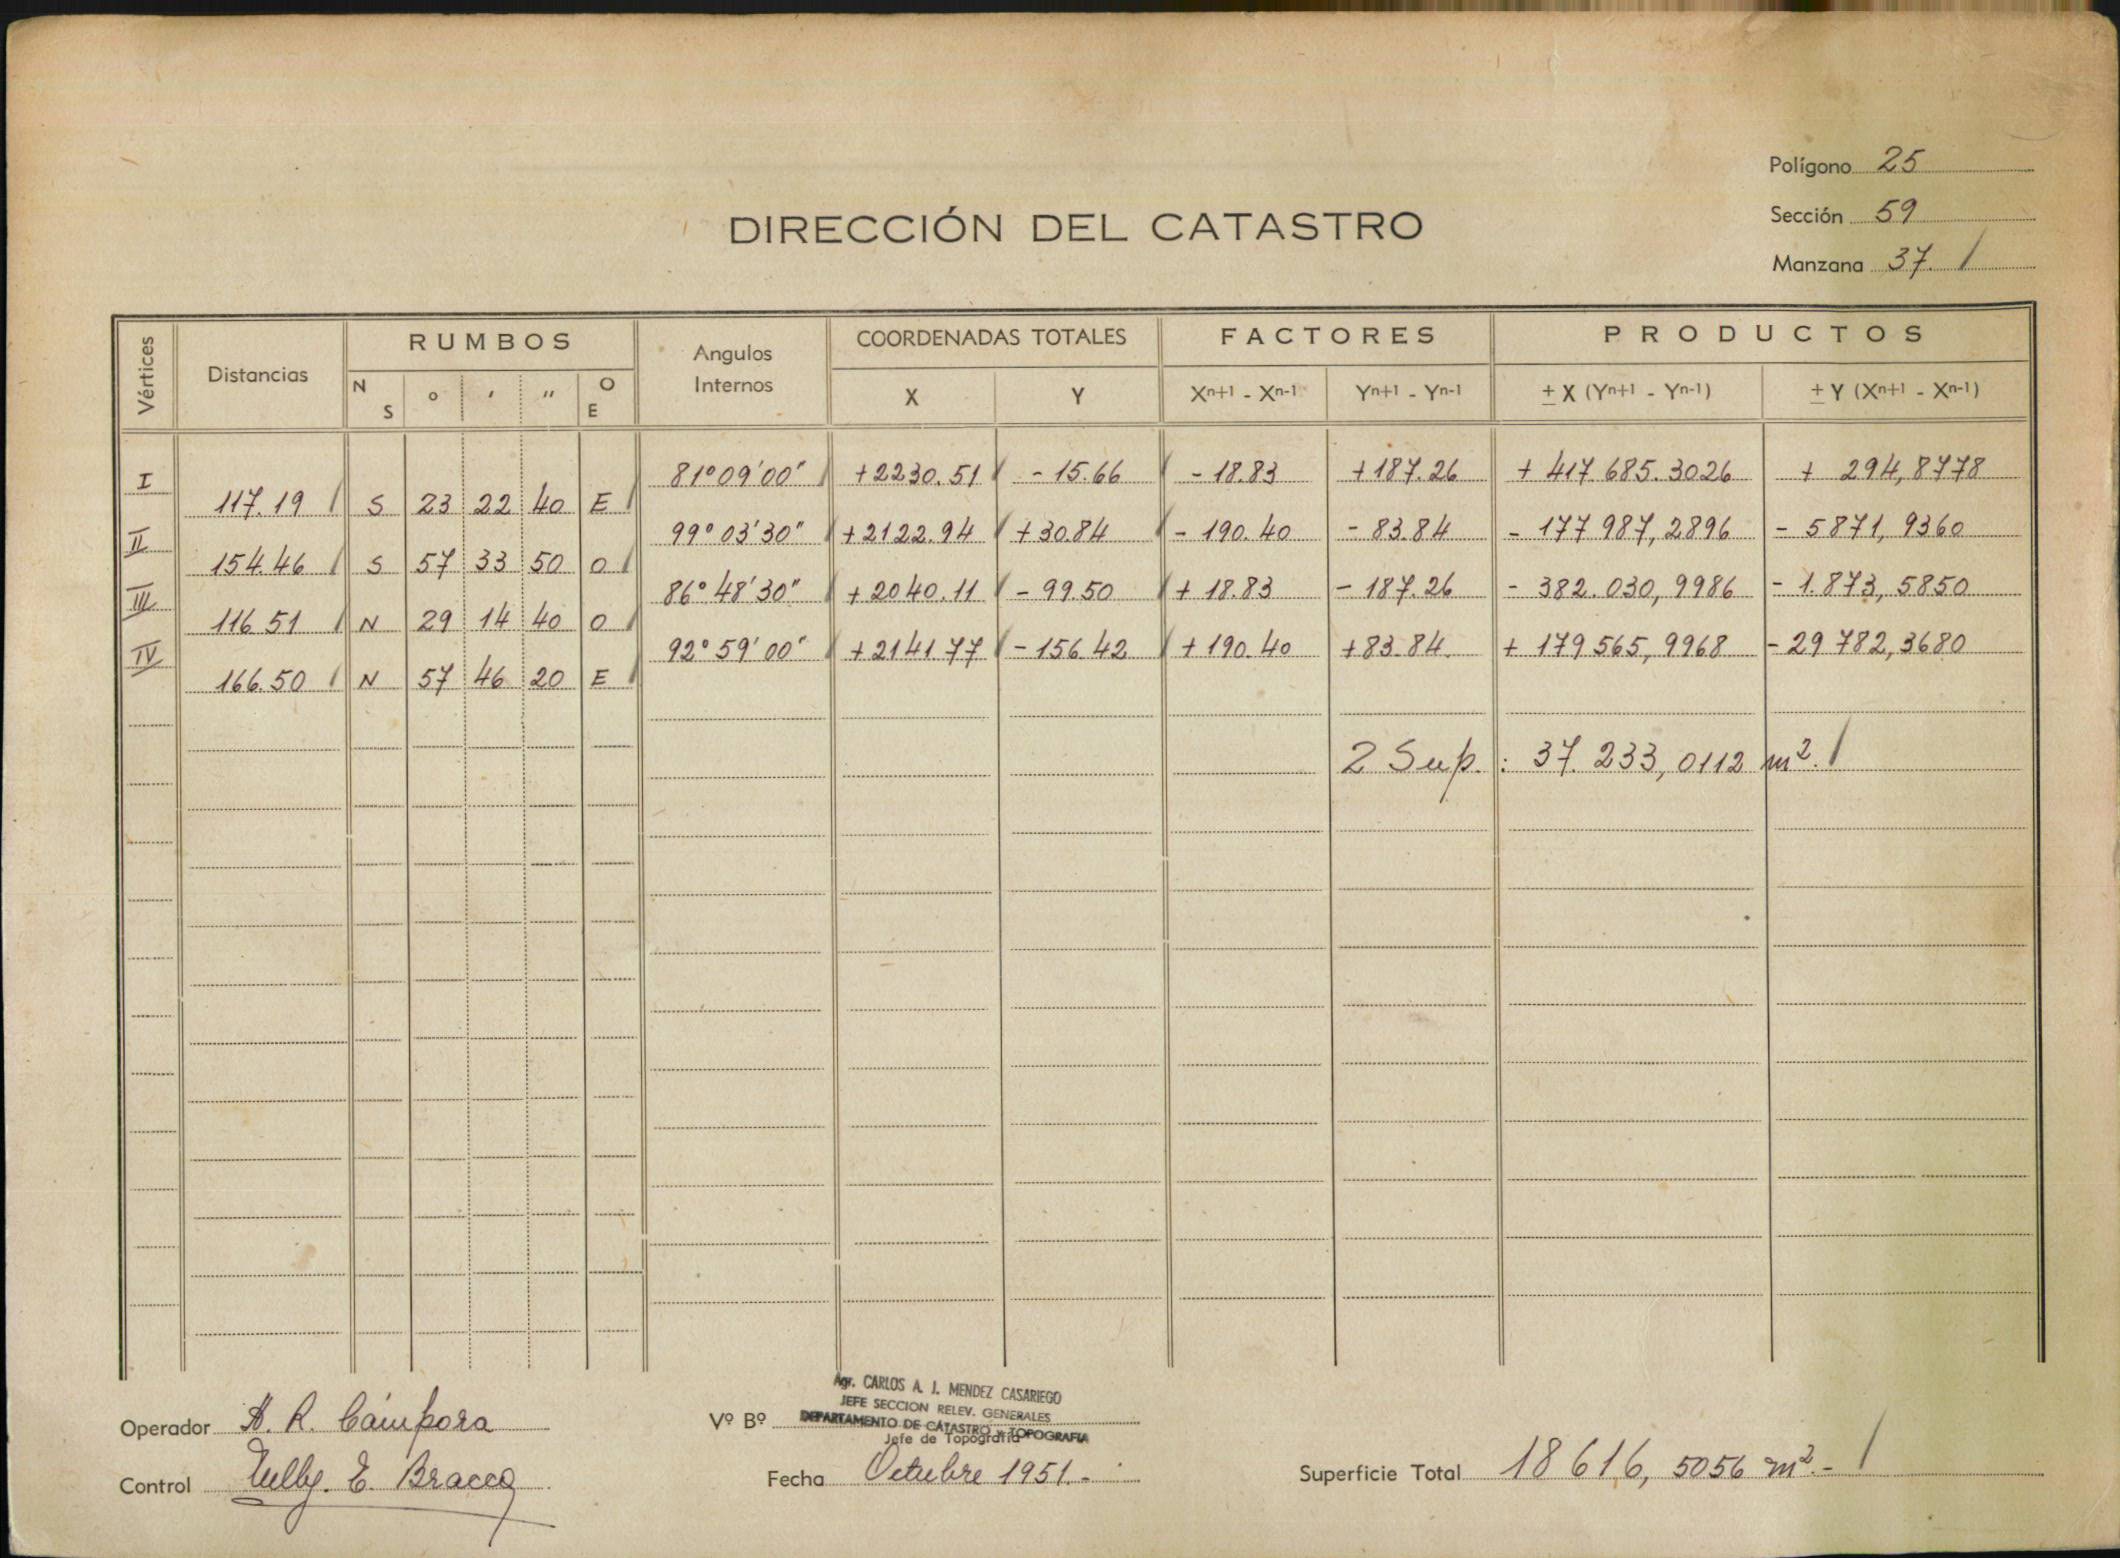 Polígono 25
Sección 59
Manzana 37.
DIRECCIÓN DEL CATASTRO
Vértices Distancias RUMBOS Angulos Internos COORDENADAS TOTALES FACTORES PRODUCTOS
N S ° ' " O E X Y Xn+1 - Xn-1 Yn+1 - Yn-1 ± X (Yn+1 - Yn-1) ± Y (Xn+1 - Xn-1)
I 81°09'00" +2230.51 - 15.66 - 18.83 +187.26 + 417.685.3026 + 294,8778
117.19 S 23 22 40 E
II 99°03'30" +2122.94 +30.84 - 190.40 - 83.84 - 177 987,2896 - 5871,9360
154.46 S 57 33 50 O
III 86°48'30" +2040.11 - 99.50 + 18.83 - 187.26 - 382.030,9986 - 1.873,5850
116.51 N 29 14 40 O
IV 92°59'00" +2141.77 - 156.42 + 190.40 +83.84 + 179 565,9968 - 29 782,3680
166.50 N 57 46 20 E
2 Sup.: 37.233,0112 m².
Operador A. R. Cámpora
Vº Bº
Agr. CARLOS A. J. MENDEZ CASARIEGO
JEFE SECCION RELEV. GENERALES
DEPARTAMENTO DE CATASTRO y TOPOGRAFIA
Jefe de Topografía
Control E. Bracco
Fecha Octubre 1951.-
Superficie Total 18 616,5056 m².-